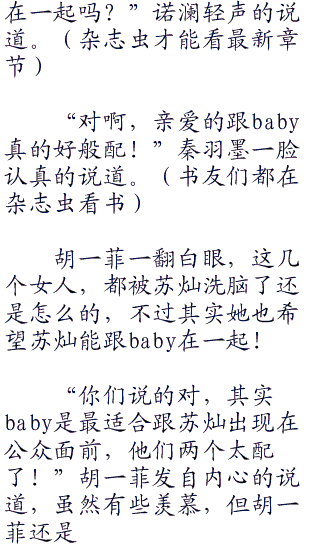 在一起吗？”诺澜轻声的说
道。（杂志虫才能看最新章
节）
“对啊，亲爱的跟baby
真的好般配！”秦羽墨一脸
认真的说道。（书友们都在
杂志虫看书）
胡一菲一翻白眼，这几
个女人，都被苏灿洗脑了还
是怎么的，不过其实她也希
望苏灿能跟baby在一起！
“你们说的对，其实
baby是最适合跟苏灿出现在
公众面前，他们两个太配
了！”胡一菲发自内心的说
道，虽然有些羡慕，但胡一
菲还是